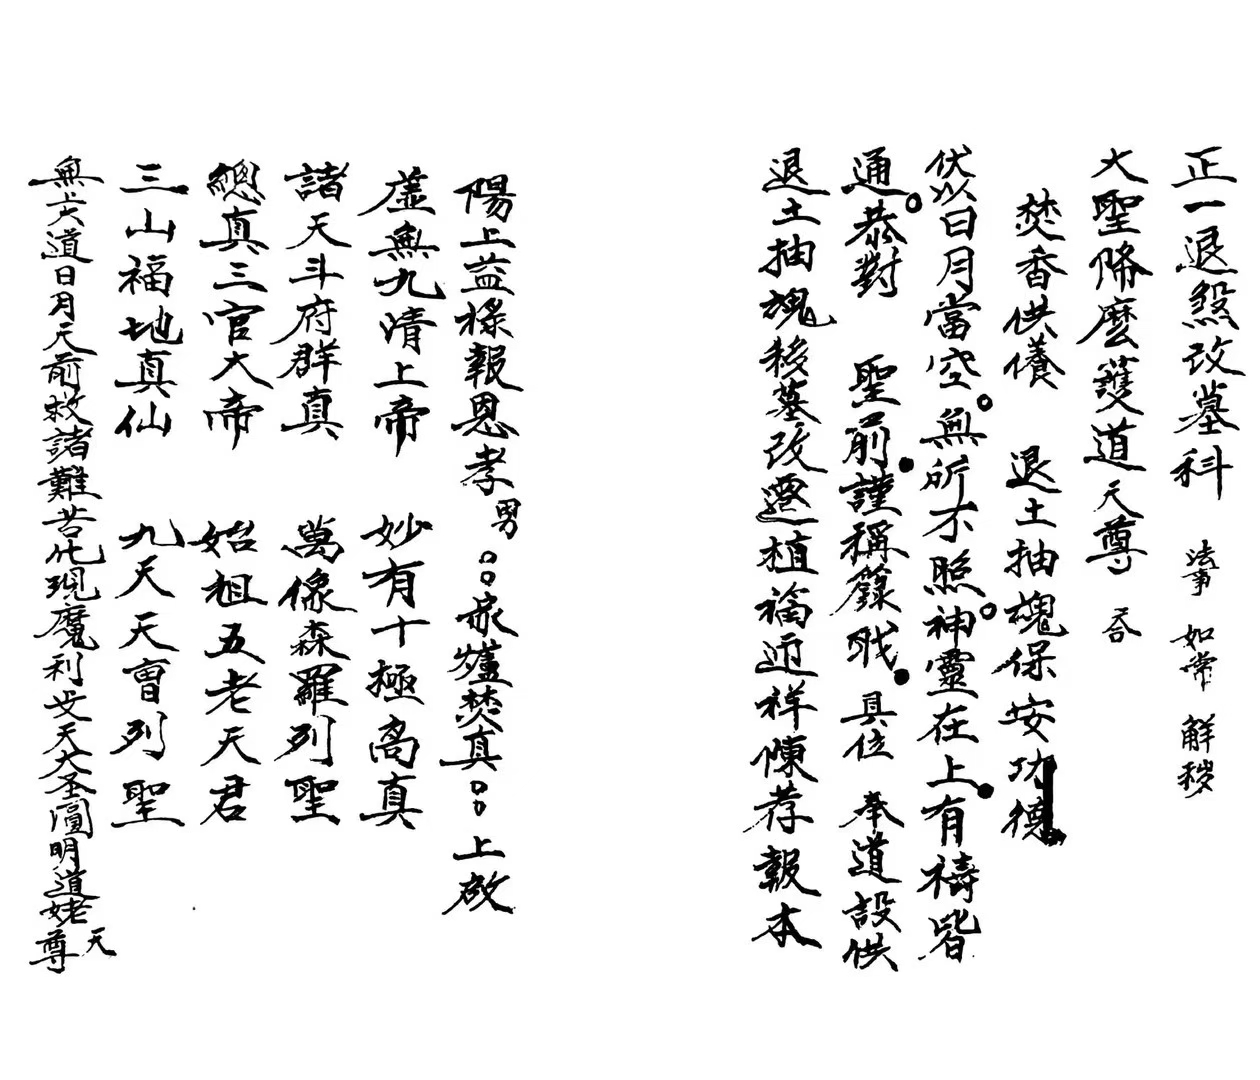 正一退煞改墓科 法事 如常 解穢
大聖降麽護道天尊 合
焚香供養 退土抽魂保安功德
伏以日月當空。無所不照。神靈在上。有禱皆
通。恭對 聖前。謹稱籙職。具位 奉道設供
退土抽魂移墓改遷植福迎祥陳荐報本
陽上益祿報恩孝男○○家爐焚真○○上啟
虛無九清上帝 妙有十極高真
諸天斗府群真 萬像森羅列聖
總真三官大帝 始祖五老天君
三山福地真仙 九天天曹列聖
無上大道日月天前救諸難苦化現魔利支天大圣圓明道姥天尊